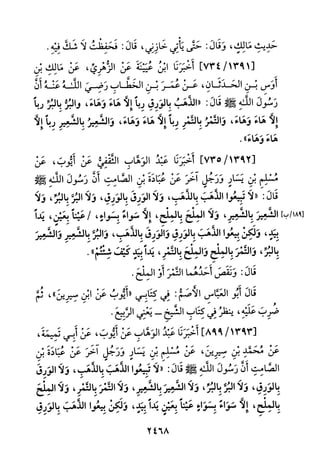 حَدِيثِ مَالِكٍ، وَقَالَ: حَتَّى يَأْتِيَ خَازِنِي، قَالَ: فَحَفِظْتُ لَا شَكَّ فِيْهِ.
[٧٣٤/١٣٩١] أَخْبَرَنَا ابْنُ عُيَيْنَةَ عَنْ الزُّهْرِيِّ، عَنْ مَالِكِ بْنِ
أَوْسِ بْنِ الْحَدَثَانِ، عَنْ عُمَرَ بْنِ الْخَطَّابِ رَضِيَ اللَّهُ عَنْهُ أَنَّ
رَسُولَ اللَّهِ ﷺ قَالَ: «الذَّهَبُ بِالوَرِقِ رِباً إِلاَّ هَاءَ وَهَاءَ، وَالبُرُّ بِالبُرِّ رِباً
إِلاَّ هَاءَ وَهَاءَ، وَالتَّمْرُ بِالتَّمْرِ رِباً إِلاَّ هَاءَ وَهَاءَ، وَالشَّعِيرُ بِالشَّعِيرِ رِباً إِلاَّ
هَاءَ وَهَاءَ».
[٧٣٥/١٣٩٢] أَخْبَرَنَا عَبْدُ الوَهَّابِ الثَّقَفِيُّ، عَنْ أَيُّوبَ، عَنْ
مُسْلِمِ بْنِ يَسَارٍ وَرَجُلٍ آخَرَ عَنْ عُبَادَةَ بْنَ الصَّامِتِ أَنَّ رَسُولَ اللَّهِ ﷺ
قَالَ: «لَا تَبِيعُوا الذَّهَبَ بِالذَّهَبِ، وَلَا الوَرِقَ بِالوَرِقِ، وَلَا البُرَّ بِالبُرِّ، وَلَا
الشَّعِيرَ بِالشَّعِيرِ، وَلَا المِلْحَ بِالمِلْحِ، إِلاَّ سَوَاءً بِسَوَاءٍ، / عَيْناً بِعَيْنٍ، يَداً [١٨٩/ب]
بِيَدٍ، وَلَكِنْ بِيعُوا الذَّهَبَ بِالوَرِقِ وَالوَرِقَ بِالذَّهَبِ، وَالبُرَّ بِالشَّعِيرِ وَالشَّعِيرَ
بِالبُرِّ، وَالتَّمْرَ بِالمِلْحِ وَالمِلْحَ بِالتَّمْرِ، يَداً بِيَدٍ كَيْفَ شِئْتُمْ».
قَالَ: وَنَقَصَ أَحَدُهُمَا التَّمْرَ أَوْ المِلْحَ.
قَالَ أَبُو العَبَّاسِ الأَصَمُّ: فِي كِتَابِي «أَيُّوبُ عَنْ ابْنِ سِيرِينَ»، ثُمَّ
ضُرِبَ عَلَيْهِ، يَنظرُ فِي كِتَابِ الشَّيخِ ـ يَعْنِي الرَّبِيعَ.
[٨٩٩/١٣٩٣] أَخْبَرَنَا عَبْدُ الوَهَّابِ، عَنْ أَيُّوبَ، عَنْ أَبِي تَمِيمَةَ،
عَنْ مُحَمَّدِ بْنِ سِيرِينَ، عَنْ مُسْلِمِ بْنِ يَسَارٍ وَرَجُلٍ آخَرَ عَنْ عُبَادَةَ بْنِ
الصَّامِتِ أَنَّ رَسُولَ اللَّهِ ﷺ قَالَ: «لَا تَبِيعُوا الذَّهَبَ بِالذَّهَبِ، وَلَا الوَرِقَ
بِالوَرِقِ، وَلَا البُرَّ بِالبُرِّ، وَلَا الشَّعِيرَ بِالشَّعِيرِ، وَلَا التَّمْرَ بِالتَّمْرِ، وَلَا المِلْحَ
بِالمِلْحِ، إِلاَّ سَوَاءً بِسَوَاءٍ عَيْناً بِعَيْنٍ يَداً بِيَدٍ، وَلَكِنْ بِيعُوا الذَّهَبَ بِالوَرِقِ
٢٤٦٨